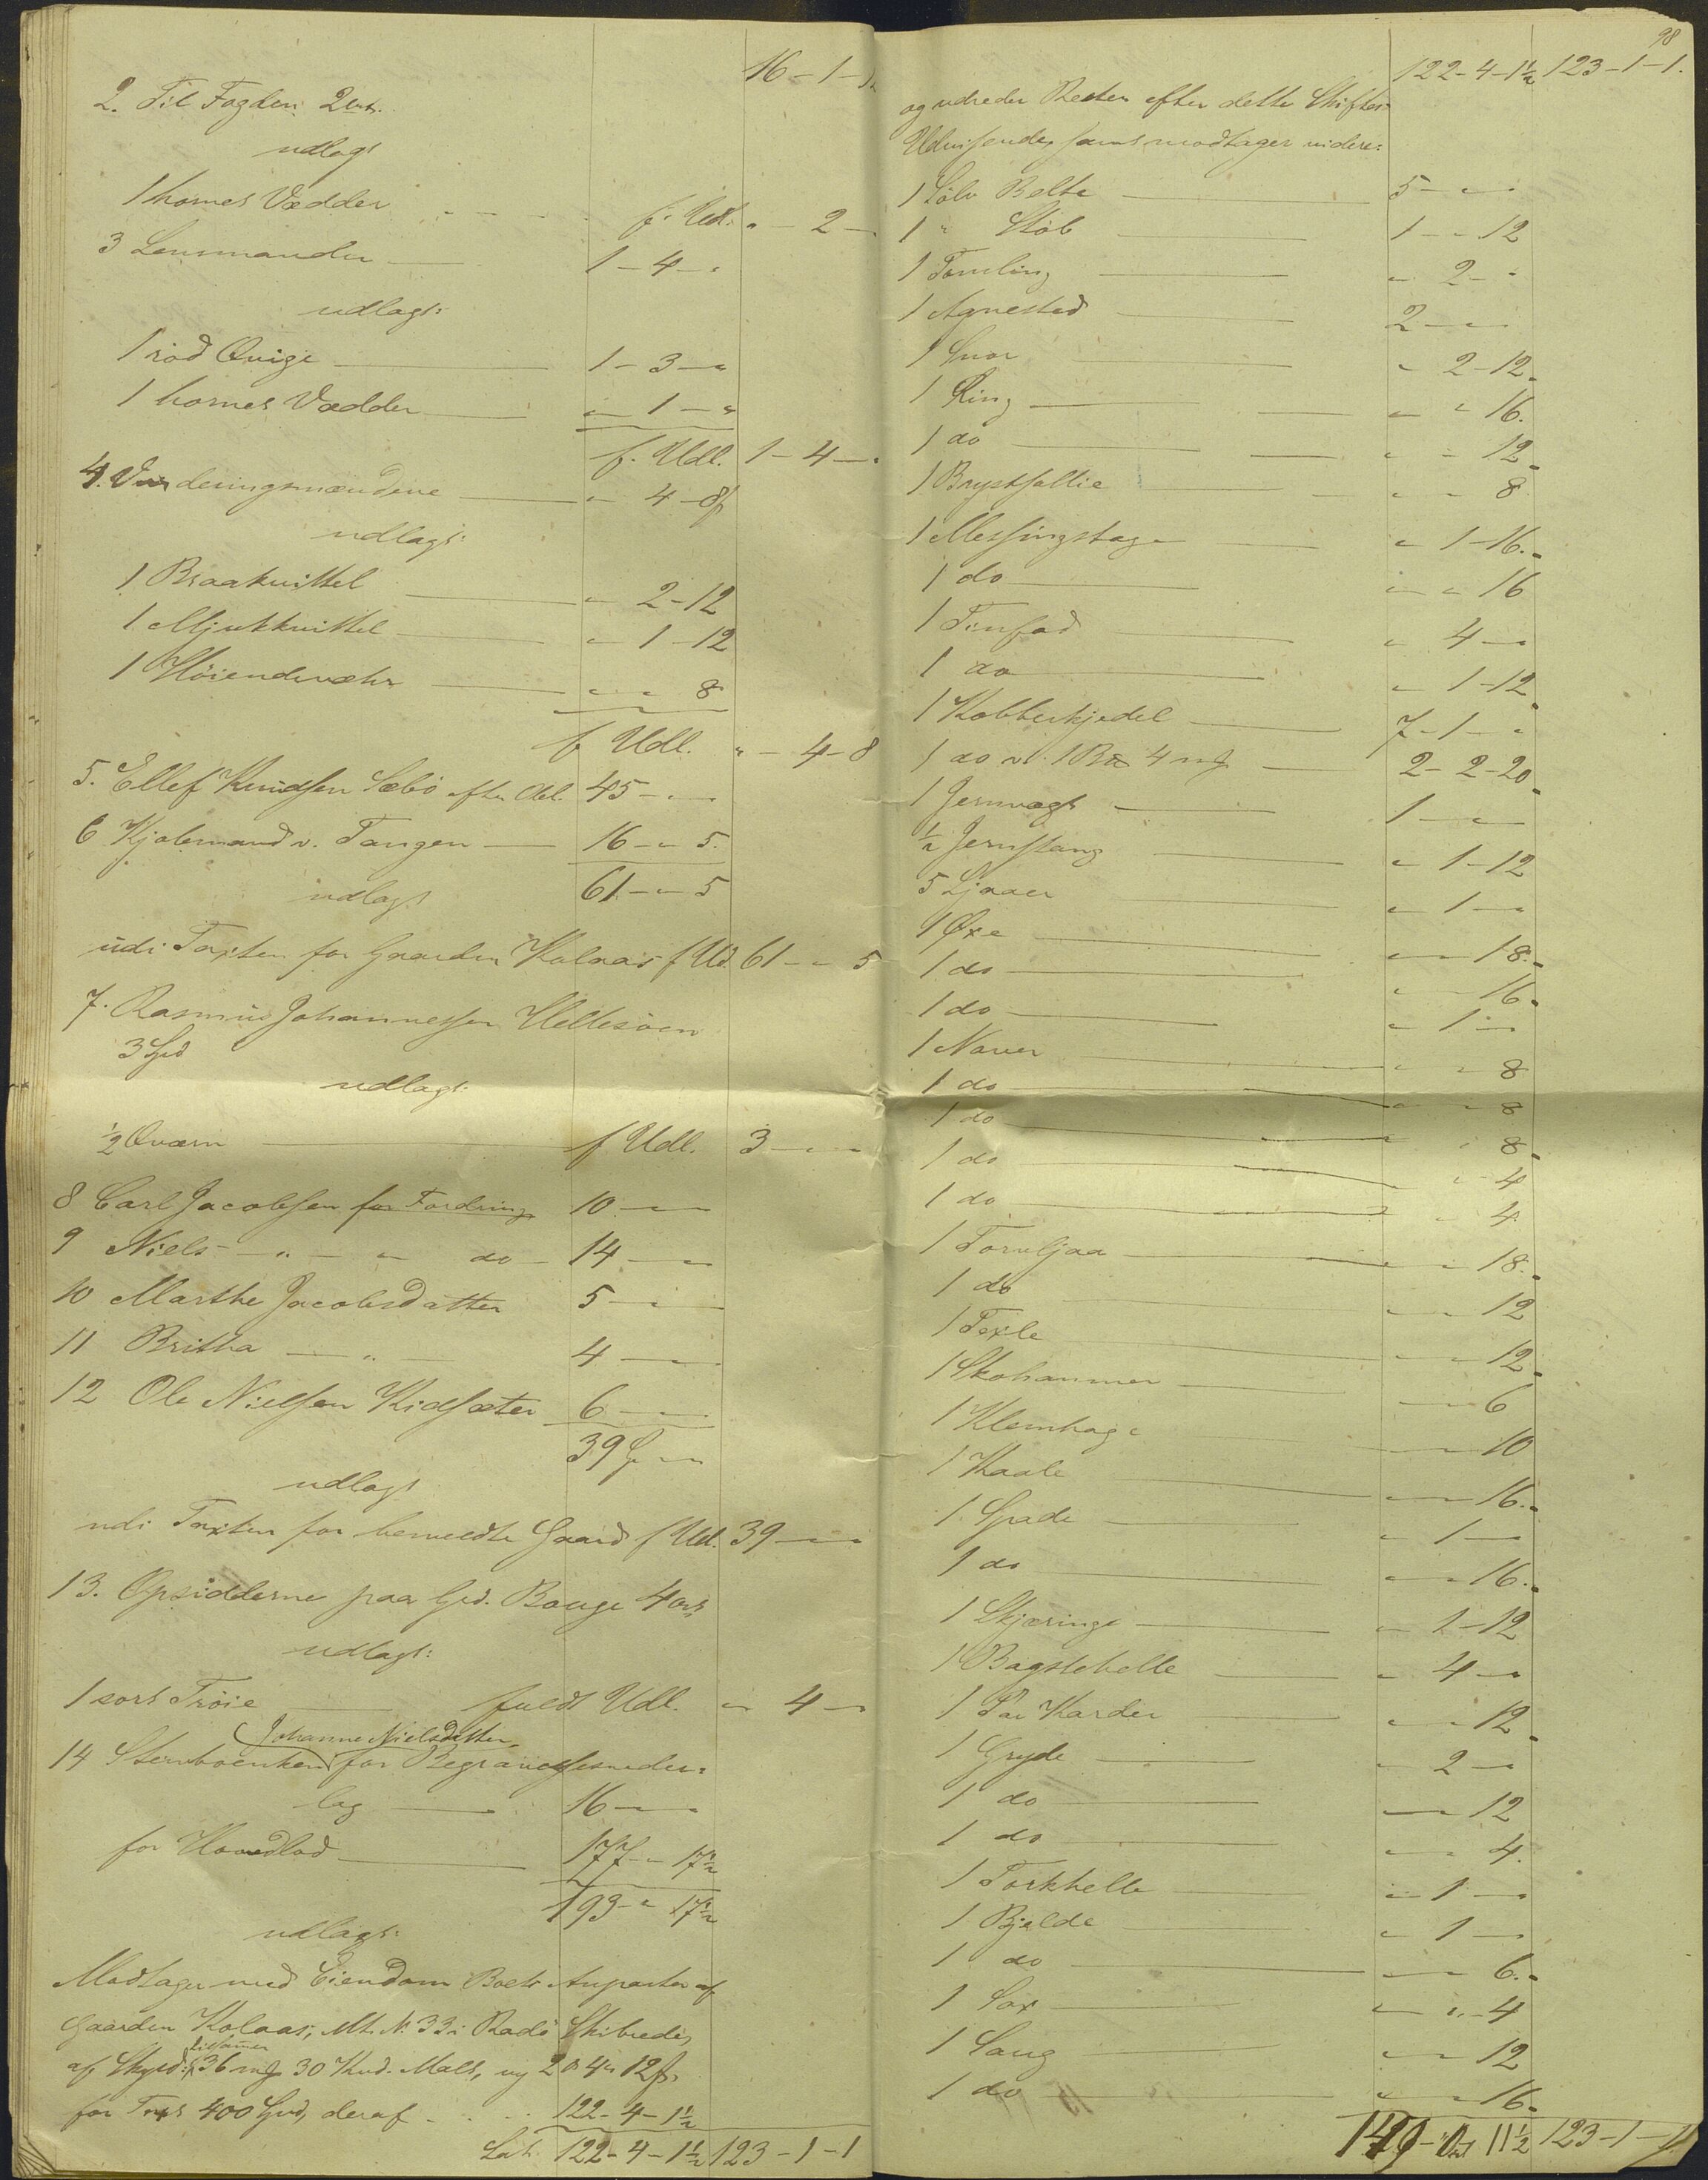 16-1-1
2. Til Fogden: 2 ort.
udlagt
1 hornet Vædder f. Udl. " - 2 -
3 Lensmanden 1-4-"
udlagt:
1 rød Qvige 1-3-"
1 hornet Vædder "-1-"
f. Udl. 1-4-"
4. Vurderingsmændene "-4-8 s
udlagt:
1 Braatkvittel "-2-12
1 Mjukkvittel "-1-12
1 Høiendevæhr "-"-8
f Udl. "-4-8
5. Ellef Knudsen Sæbø efter Obl. 45-"-"
6 Kjøbmand v. Tangen 16-"-5.
61-"-5
udlagt
udi Taxten for Gaarden Kolaas f Ud. 61-"-5
7. Rasmus Johannessen Hellesøen
3 Spd
udlagt:
½ Qværn f Udl. 3-"-"
8 Carl Jacobsen for Fordring 10-"-"
9 Niels -"- " do 14-"-"
10 Marthe Jacobsdatter 5-"-"
11 Britha -"- 4-"-"
12 Ole Nielsen Kidsæter 6-"-"
39-"-"
udlagt
udi Taxten for bemeldte Gaard f Udl. 39-"-"
13. Opsidderne paa Grd. Bouge 4 ort
udlagt:
1 sort Trøie fuldt Udl. "-4-"
Johanne Nielsdatter,
14 Stervboenken for Begravelsesneder-
lag 16-"-"
for Hovedlod 177-"-17½
193-"-17½
udlagt:
Modtager med Eiendom Boets Anparter af
Gaarden Kolaas, Mt. N. 33 i Radø Skibrede,
tilsamen
af Skyld: 36 mk 30 Knd. Malt, ny 2 D 4 " 12 s,
for Taxt 400 Spd, deraf 122-4-1½
Lat. 122-4-1½ 123-1-1
98
122-4-1½ 123-1-1.
og udreder Resten efter dette Skiftes
Udvisende, samt modtager videre:
1 Sølv Belte 5-"-"
1 " Støb 1-"-12
1 Tomling "-2-"
1 Agnestad 2-"-"
1 Snor "-2-12
1 Ring "-"-16.
1 do "-"-12
1 Brystsallie "-"-8
1 Messingstage "-1-16.
1 do "-"-16
1 Tinfad "-4-"
1 do "-1-12
1 Kobberkjedel 7-1-"
1 do v. 1 B 4 mk 2-2-20
1 Jernvægt 1-"-"
½ Jernstang "-1-12
5 Ljaaer "-1-"
1 Øxe "-"-18.
1 do "-"-16.
1 do "-1-"
1 Naver "-"-8
1 do "-"-8
1 do "-"-8
1 do "-"-4
1 do "-"-4
1 Torvljaa "-"-18.
1 do "-"-12
1 Texle "-"-12
1 Skohammer "-"-6
1 Klemhage "-"-10
1 Kaale "-"-16.
1 Spade "-1-"
1 do "-"-16.
1 Skjæringe "-1-12
1 Bagstehelle "-4-"
1 Par Karder "-"-12
1 Gryde "-2-"
1 do "-"-12
1 do "-"-4.
1 Torkhelle "-1-"
1 Bjelde "-1-"
1 do "-"-6.
1 Sax "-"-4
1 Saug "-"-12
1 do "-"-16.
149-"- 11½ 123-1-1